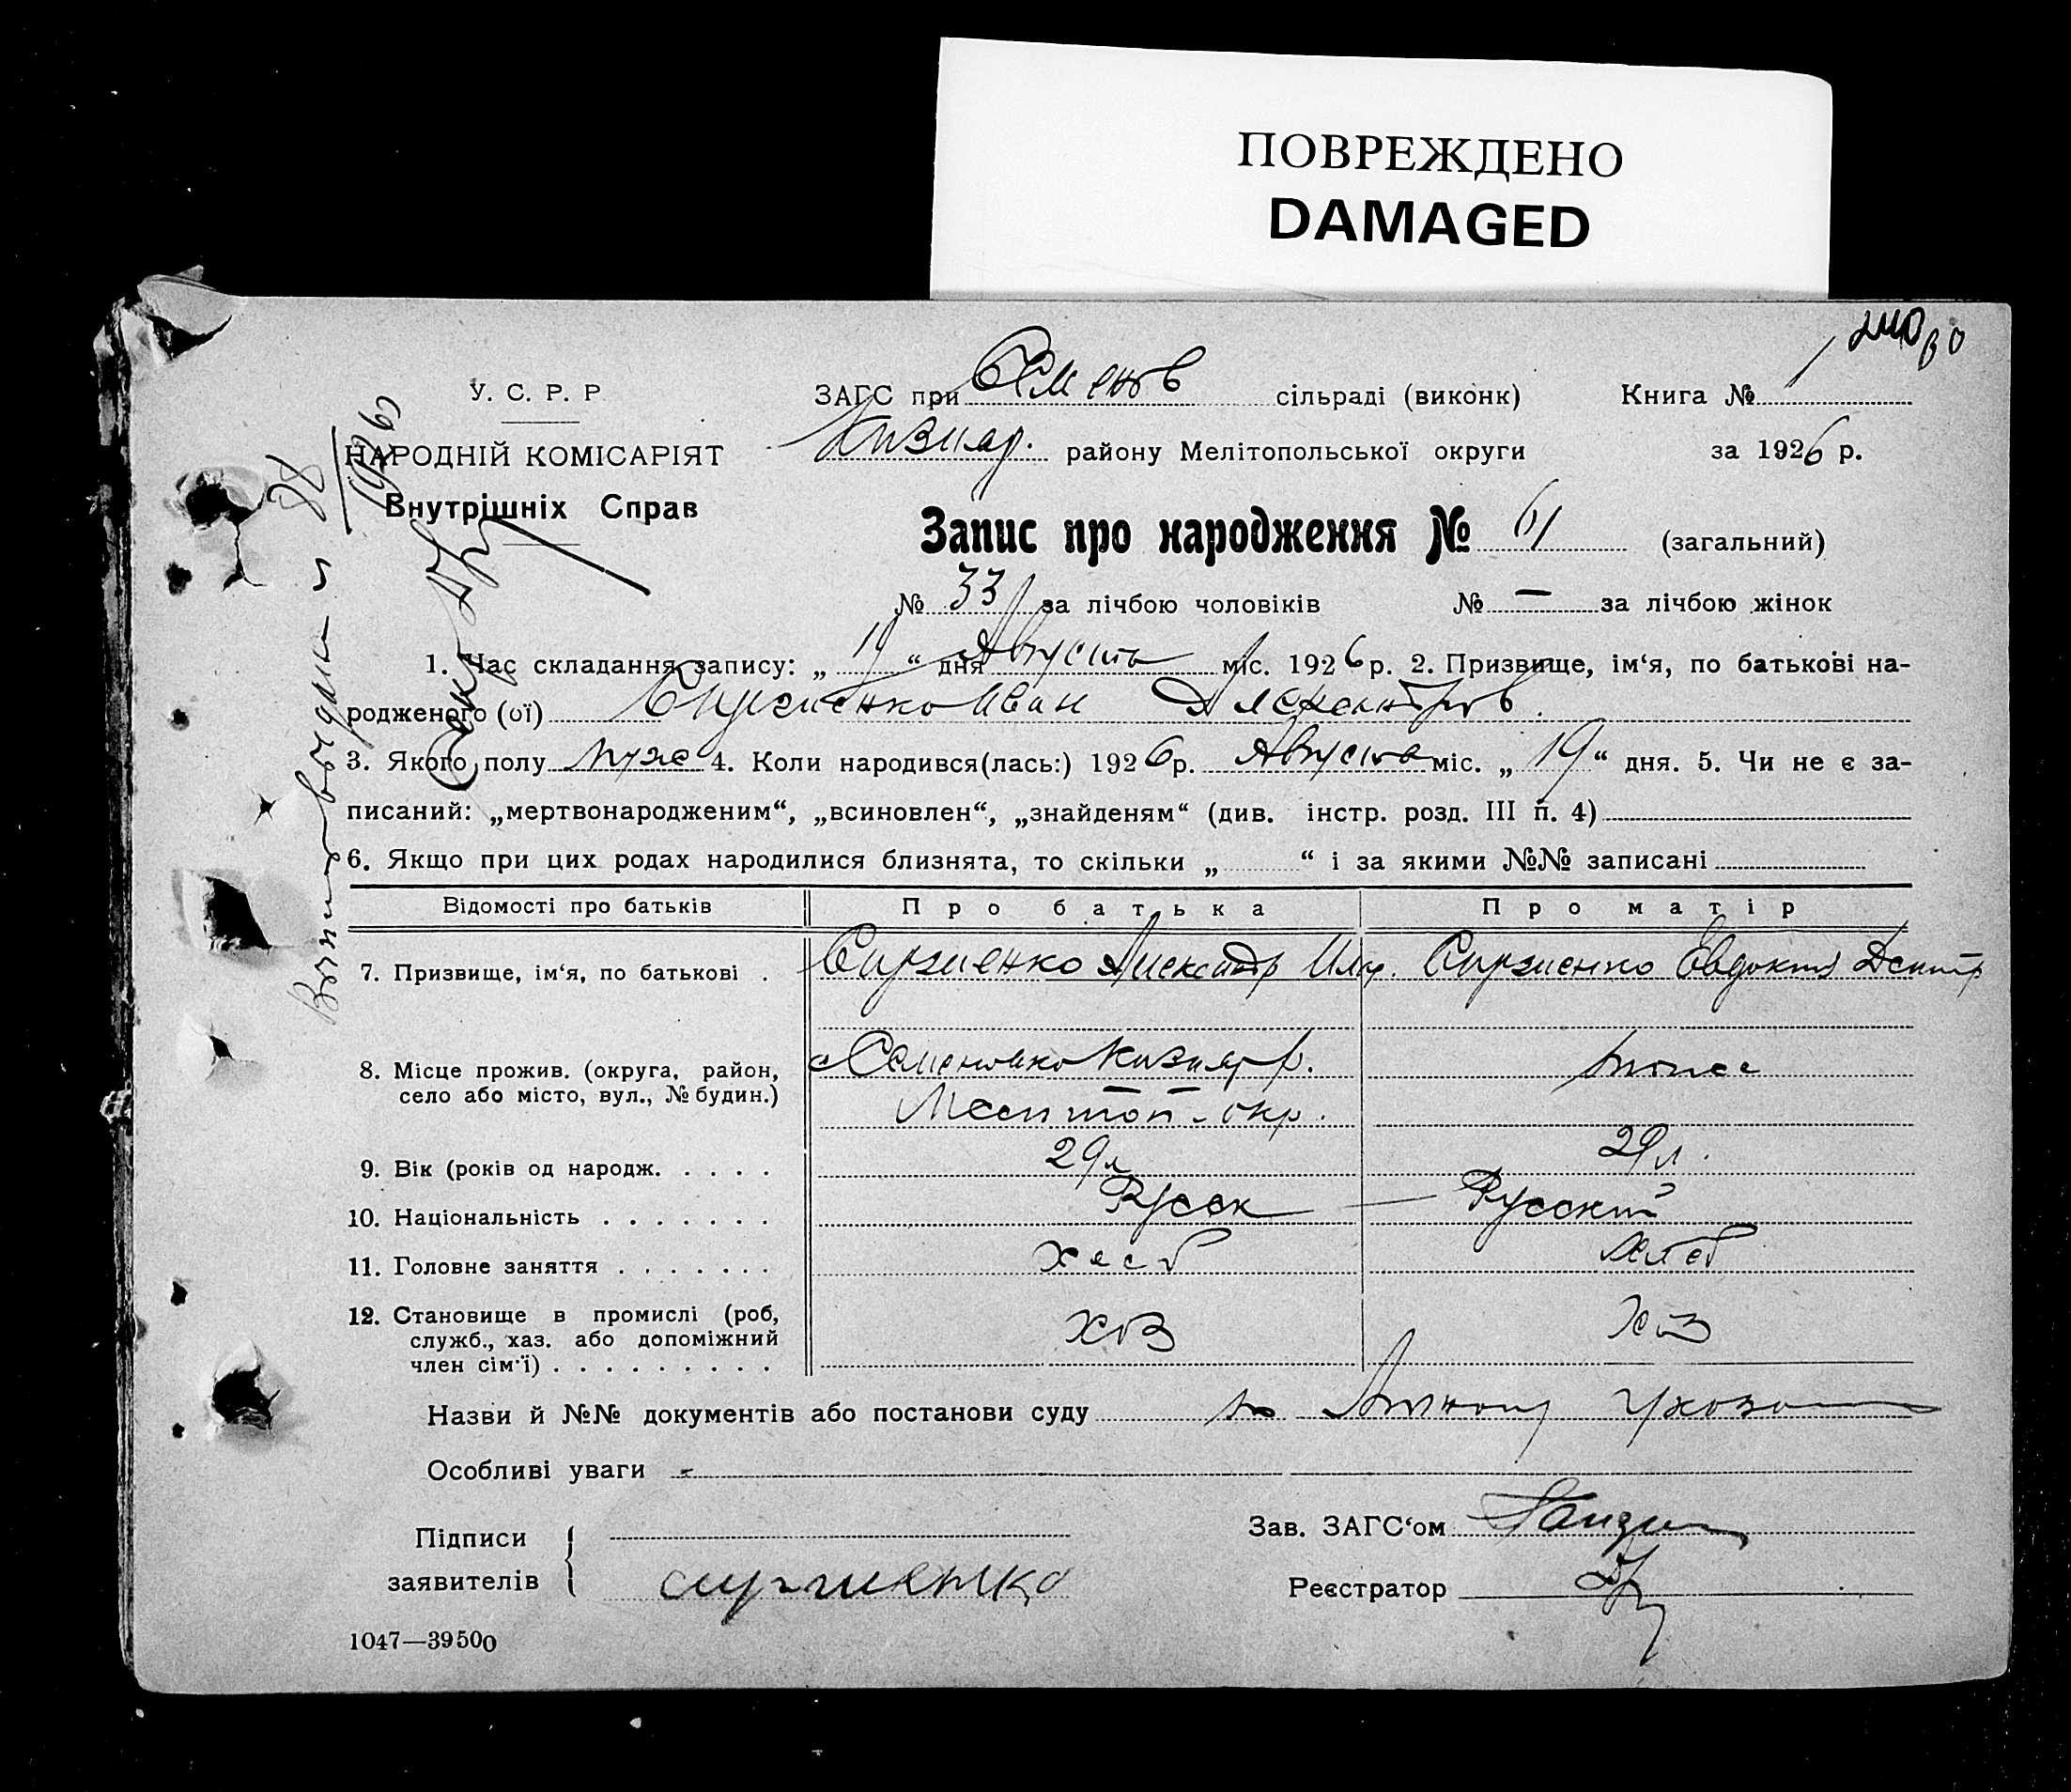 ПОВРЕЖДЕНО
DAMAGED
У. С. Р. Р
НАРОДНІЙ КОМІСАРІЯТ
Внутрішніх Справ
ЗАГС при Семенов сільраді (виконк)
Кизиар. району Мелітопольської округи
Книга № 1
за 1926 р.
Запис про народження № 61 (загальний)
№ 33 за лічбою чоловіків № — за лічбою жінок
1. Час складання запису: „ 19 “ дня Августа міс. 1926 р. 2. Призвище, ім‘я, по батькові на-
родженого (ої) Сиргиенко Иван Александров
3. Якого полу муж 4. Коли народився(лась:) 1926р. Августа міс. „ 19 “ дня. 5. Чи не є за-
писаний: „мертвонародженим“, „всиновлен“, „знайденям“ (див. інстр. розд. III п. 4)
6. Якщо при цих родах народилися близнята, то скільки „ “ і за якими №№ записані
Відомості про батьків Про батька Про матір
7. Призвище, ім‘я, по батькові . Сиргиенко Александр Сиргиенко Евдокия Дмитр
8. Місце прожив. (округа, район, село або місто, вул., № будин.) с Семеновка Кизиар р. тоже
Мелитоп. окр.
9. Вік (років од народж. . . . . 29 л 29 л.
10. Національність . . . . . . . Русск — Русский
11. Головне заняття . . . . . . . хлеб хлеб
12. Становище в промислі (роб, служб., хаз. або допоміжний член сім‘ї) . . . . . . . . . хоз хоз
Назви й №№ документів або постанови суду
Особливі уваги -
Підписи
заявителів
сиргиенко
Зав. ЗАГС‘ом
Реєстратор
1047—39500